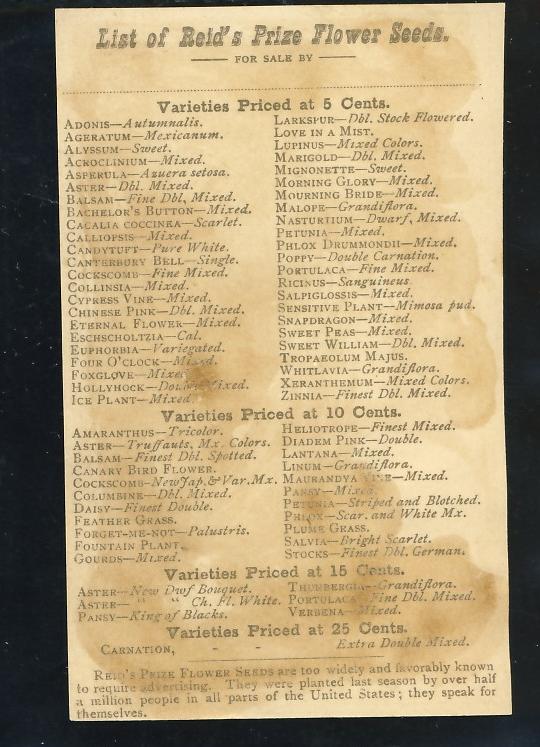 List of Reid's Prize Flower Seeds.
FOR SALE BY
Varieties Priced at 5 Cents.
ADONIS—Autumnalis.
AGERATUM—Mexicanum.
ALYSSUM—Sweet.
ACROCLINIUM—Mixed.
ASPERULA—Azuera setosa.
ASTER—Dbl. Mixed.
BALSAM—Fine Dbl, Mixed.
BACHELOR'S BUTTON—Mixed.
CACALIA COCCINEA—Scarlet.
CALLIOPSIS—Mixed.
CANDYTUFT—Pure White.
CANTERBURY BELL—Single.
COCKSCOMB—Fine Mixed.
COLLINSIA—Mixed.
CYPRESS VINE—Mixed.
CHINESE PINK—Dbl. Mixed.
ETERNAL FLOWER—Mixed.
ESCHSCHOLTZIA—Cal.
EUPHORBIA—Variegated.
FOUR O'CLOCK—Mixed.
FOXGLOVE—Mixed
HOLLYHOCK—Double Mixed.
ICE PLANT—Mixed
LARKSPUR—Dbl. Stock Flowered.
LOVE IN A MIST.
LUPINUS—Mixed Colors.
MARIGOLD—Dbl. Mixed.
MIGNONETTE—Sweet.
MORNING GLORY—Mixed.
MOURNING BRIDE—Mixed.
MALOPE—Grandiflora.
NASTURTIUM—Dwarf, Mixed.
PETUNIA—Mixed.
PHLOX DRUMMONDII—Mixed.
POPPY—Double Carnation.
PORTULACA—Fine Mixed.
RICINUS—Sanguineus
SALPIGLOSSIS—Mixed.
SENSITIVE PLANT—Mimosa pud.
SNAPDRAGON—Mixed.
SWEET PEAS—Mixed.
SWEET WILLIAM—Dbl. Mixed.
TROPAEOLUM MAJUS.
WHITLAVIA—Grandiflora.
XERANTHEMUM—Mixed Colors.
ZINNIA—Finest Dbl. Mixed.
Varieties Priced at 10 Cents.
AMARANTHUS—Tricolor.
ASTER—Truffauts, Mx. Colors.
BALSAM—Finest Dbl. Spotted.
CANARY BIRD FLOWER.
COCKSCOMB—New Jap. & Var. Mx.
COLUMBINE—Dbl. Mixed.
DAISY—Finest Double.
FEATHER GRASS.
FORGET-ME-NOT—Palustris.
FOUNTAIN PLANT.
GOURDS—Mixed.
HELIOTROPE—Finest Mixed.
DIADEM PINK—Double.
LANTANA—Mixed.
LINUM—Grandiflora.
MAURANDYA VINE—Mixed.
PANSY—Mixed.
PETUNIA—Striped and Blotched.
PHLOX—Scar. and White Mx.
PLUME GRASS.
SALVIA—Bright Scarlet.
STOCKS—Finest Dbl. German.
Varieties Priced at 15 Cents.
ASTER—New Dwf Bouquet.
ASTER— " " Ch. Fl. White.
PANSY—King of Blacks.
THUNBERGIA—Grandiflora.
PORTULACA—Fine Dbl. Mixed.
VERBENA—Mixed.
Varieties Priced at 25 Cents.
CARNATION, - - Extra Double Mixed.
REID'S PRIZE FLOWER SEEDS are too widely and favorably known
to require advertising. They were planted last season by over half
a million people in all parts of the United States; they speak for
themselves.